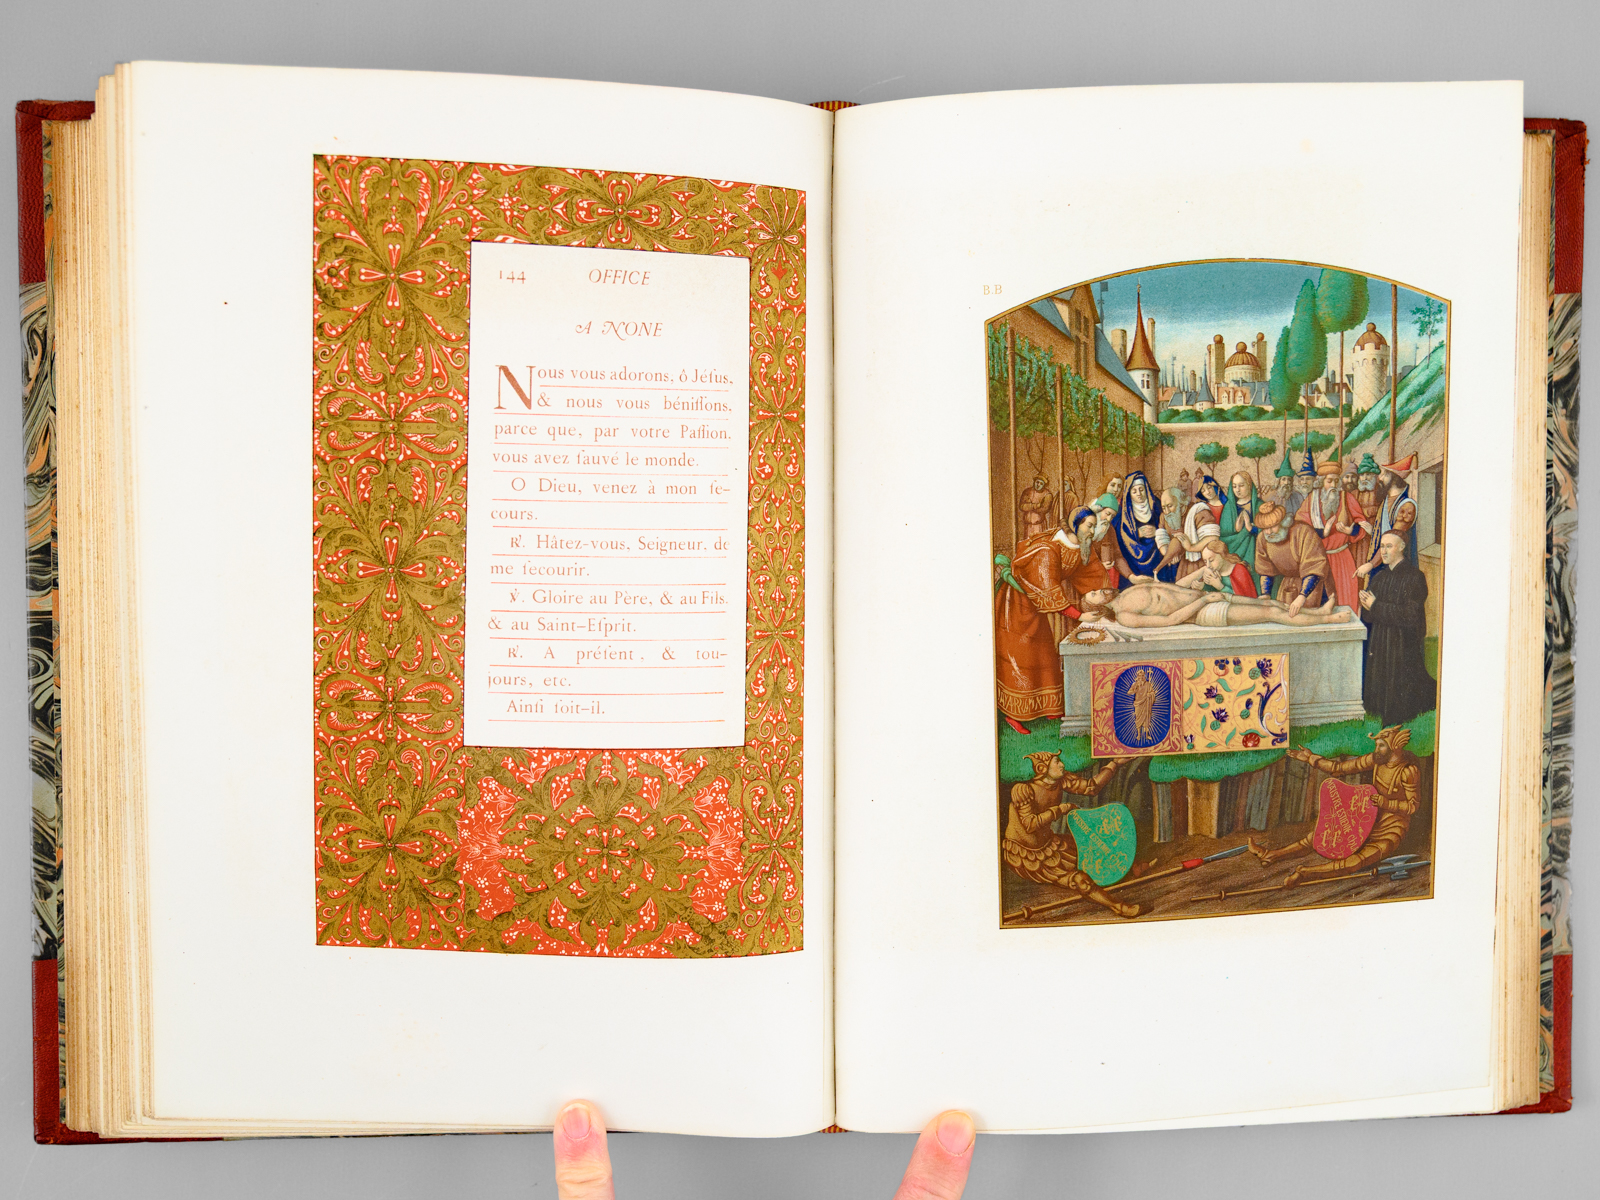 144 OFFICE
A NONE
Nous vous adorons, ô Jéſus,
& nous vous béniſſons,
parce que, par votre Paſſion,
vous avez ſauvé le monde.
O Dieu, venez à mon ſe-
cours.
℟. Hâtez-vous, Seigneur, de
me ſecourir.
℣. Gloire au Père, & au Fils,
& au Saint-Eſprit.
℟. A préſent, & tou-
jours, etc.
Ainſi ſoit-il.
B.B